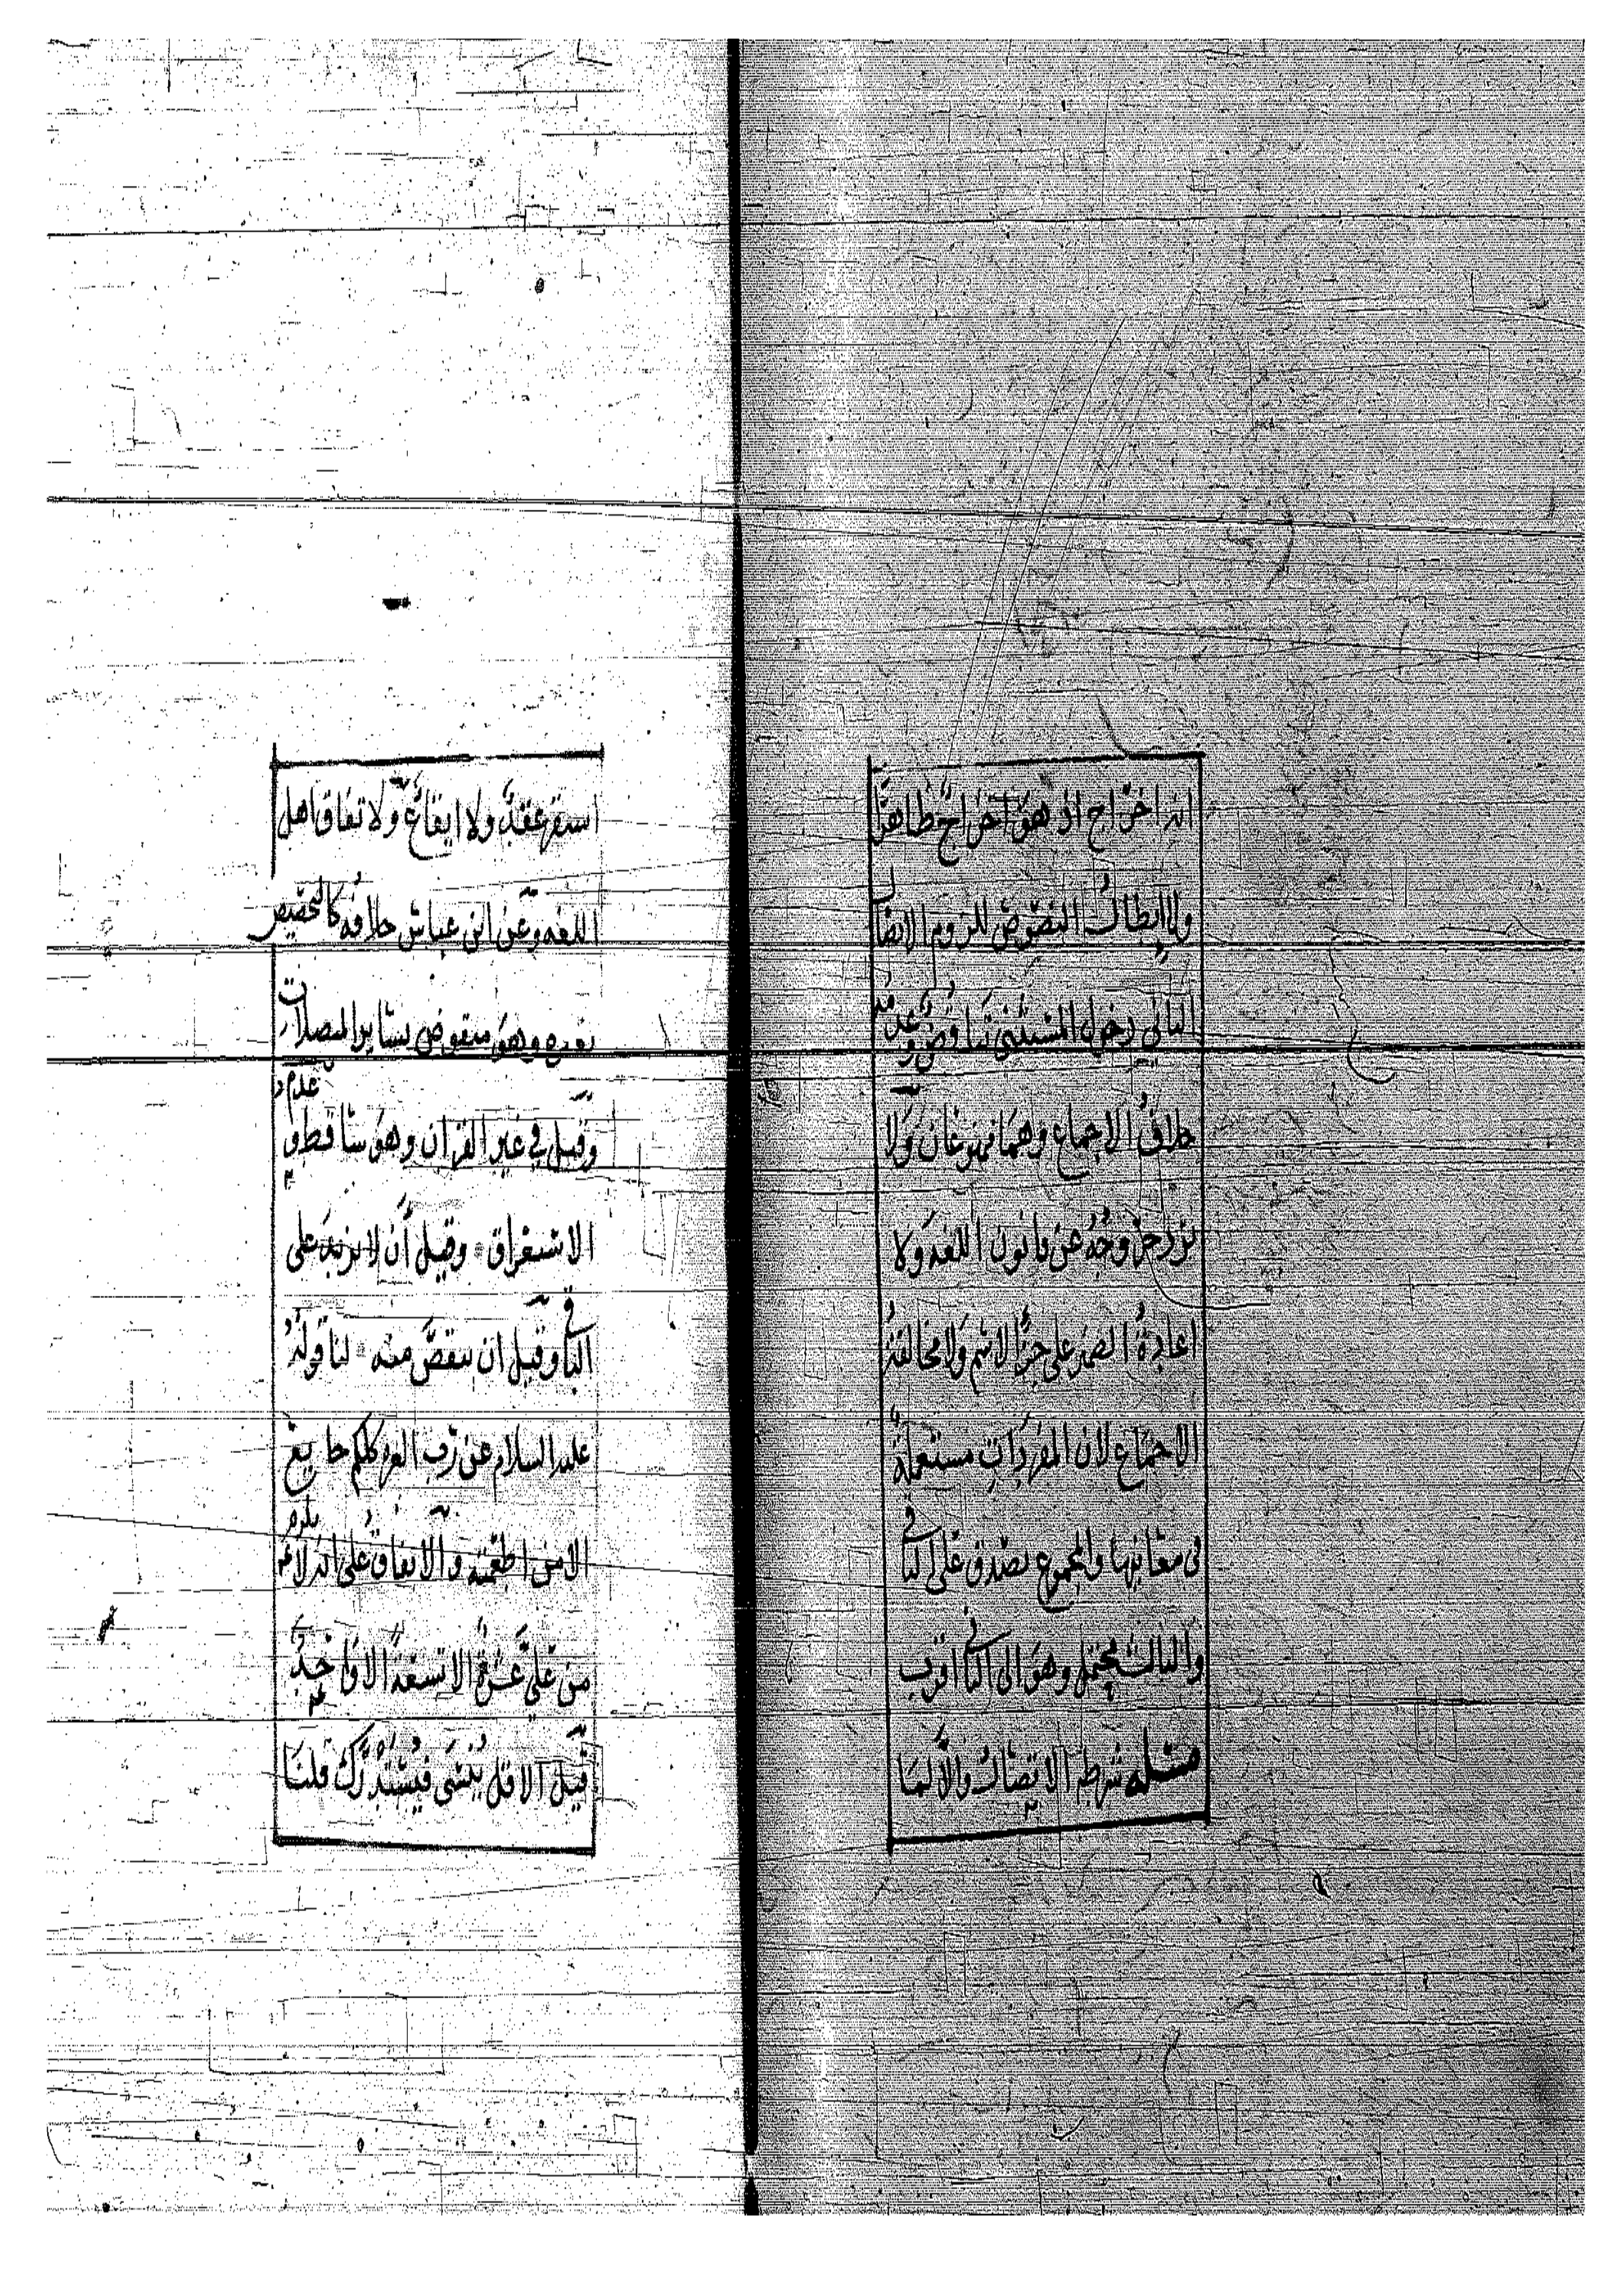 انه اخراج اذ هو اخراج ظاهرًا
ولا ابطال النصوص للزوم الاتصال
الثاني دخول المستثنى تناقض وعدمه
خلاف الاجماع وهما ممنوعان ولا
يرد خروجه عن قانون اللغه ولا
اعادة الضمير على جزء الاسم ولا مخالفة
الاجماع لان المفردات مستعملة
في معانيها والمجموع يصدق على الباقي
والثالث محتمل وهو الى الثاني اقرب
مسئله شرطه الاتصال والا لما
استقر عقد ولا ايقاع ولاتفاق اهل
اللغه وعن ابن عباس خلافه كالتخصيص
بغيره وهو منقوض بساير المتصلات
وقيل في غير القرآن وهو ساقط وعدم
الاستغراق وقيل أن لا يزيد على
الباقي وقيل ان ينقص منه لنا قوله
عليه السلام عن رب العزه كلكم جايع
الا من اطعمته والاتفاق على انه لا يلزم
من علي عشرة الا تسعة الا واحد
قيل الاقل ينسى فيستدرك قلنا